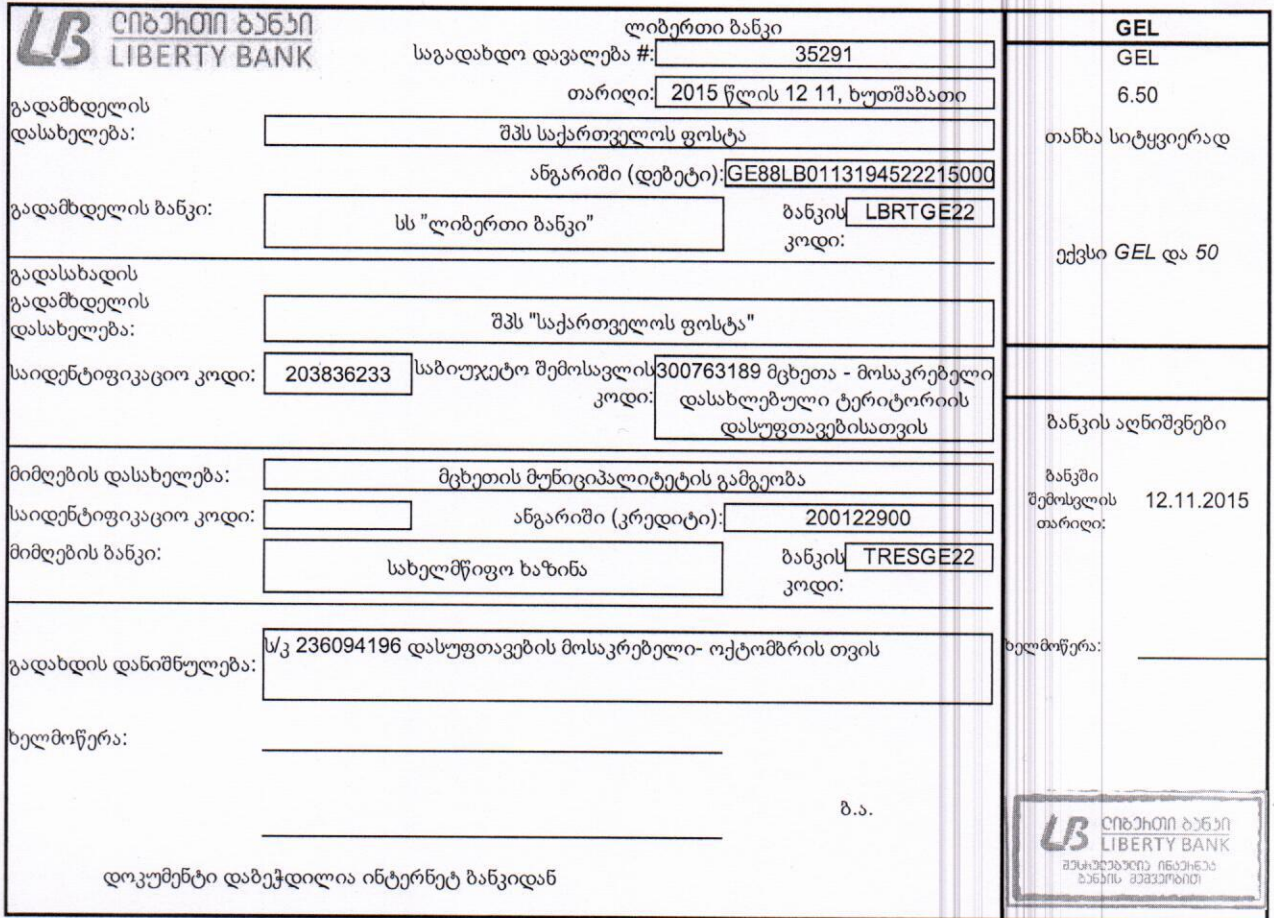 ლიბერთი ბანკი
LIBERTY BANK
ლიბერთი ბანკი
საგადახდო დავალება #: 35291
თარიღი: 2015 წლის 12 11, ხუთშაბათი
გადამხდელის
დასახელება: შპს საქართველოს ფოსტა
ანგარიში (დებეტი): GE88LB0113194522215000
გადამხდელის ბანკი: სს "ლიბერთი ბანკი" ბანკის LBRTGE22
კოდი:
გადასახადის
გადამხდელის
დასახელება: შპს "საქართველოს ფოსტა"
საიდენტიფიკაციო კოდი: 203836233 საბიუჯეტო შემოსავლის 300763189 მცხეთა - მოსაკრებელი
კოდი: დასახლებული ტერიტორიის
დასუფთავებისათვის
მიმღების დასახელება: მცხეთის მუნიციპალიტეტის გამგეობა
საიდენტიფიკაციო კოდი: ანგარიში (კრედიტი): 200122900
მიმღების ბანკი: სახელმწიფო ხაზინა ბანკის TRESGE22
კოდი:
გადახდის დანიშნულება: ს/კ 236094196 დასუფთავების მოსაკრებელი- ოქტომბრის თვის
ხელმოწერა:
ბ.ა.
დოკუმენტი დაბეჭდილია ინტერნეტ ბანკიდან
GEL
GEL
6.50
თანხა სიტყვიერად
ექვსი GEL და 50
ბანკის აღნიშვნები
ბანკში
შემოსვლის 12.11.2015
თარიღი:
ხელმოწერა:
ლიბერთი ბანკი
LIBERTY BANK
შესრულებულია ინტერნეტ
ბანკის მეშვეობით